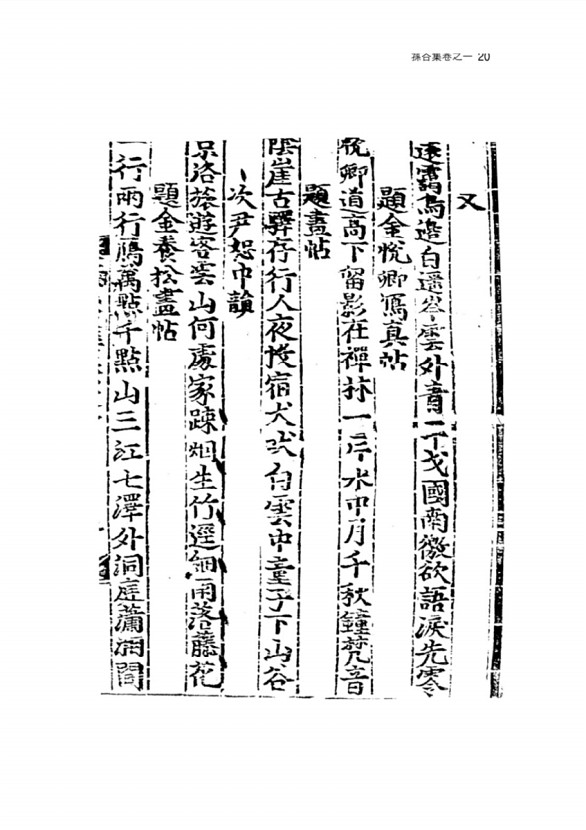 孫谷集卷之一 20
又
遠靄鳥邊白遥岑雲外青干戈國南徼欲語淚先零
題金悅卿寫真帖
悅卿道高下留影在禪林一片水中月千秋鐘梵音
題畫帖
陰崖古驛存行人夜投宿犬吠白雲中童子下山谷
次尹恕中韻
京洛旅遊客雲山何處家疎烟生竹逕細雨落藤花
題金養松畫帖
一行兩行鴈萬點千點山三江七澤外洞庭瀟湘間